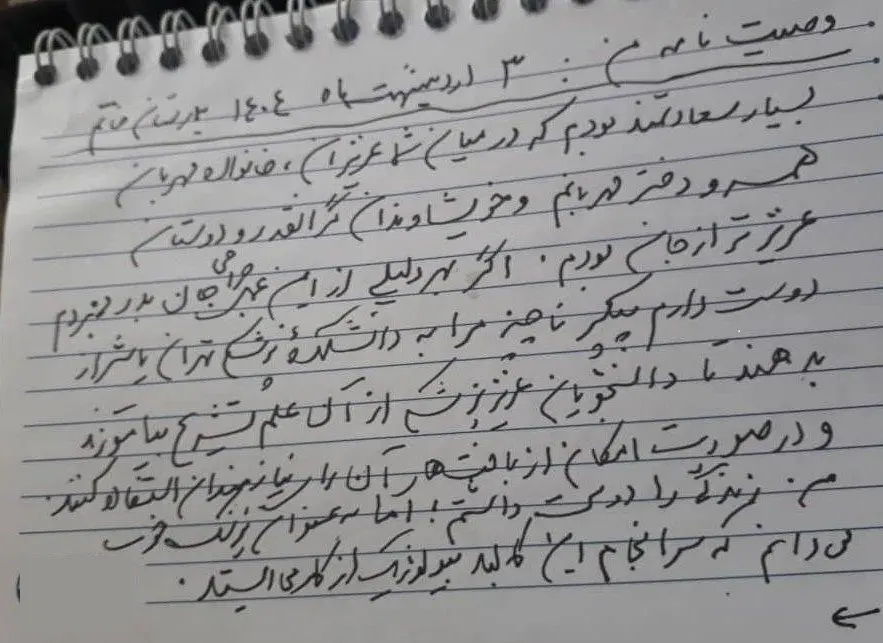 وصیت نامه من : ۳ اردیبهشت ماه ۱۴۰۴ بیمارستان خاتم
بسیار سعادتمند بودم که در میان شما عزیزان، خانواده مهربان
همسر و دختر مهربانم و خویشاوندان گرانقدر و دوستان
عزیزتر از جان بودم. اگر بهر دلیلی از این عمل جراحی جان بدر نبردم
دوست دارم پیکر ناچیز مرا به دانشکده پزشکی تهران یا شیراز
بدهند تا دانشجویان عزیز پزشکی از آن علم تشریح بیاموزند
و در صورت امکان از بافت‌های آن برای نیازمندان استفاده کنند.
من زندگی را دوست داشتم؛ اما به عنوان پزشک خوب
می دانم که سرانجام این کالبد بیولوژیک از کار می ایستد.
←